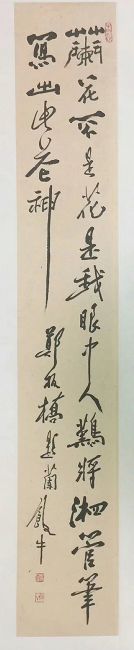 蘭花不是花是我眼中人難將湘管筆
寫出此花神
鄭板橋題蘭